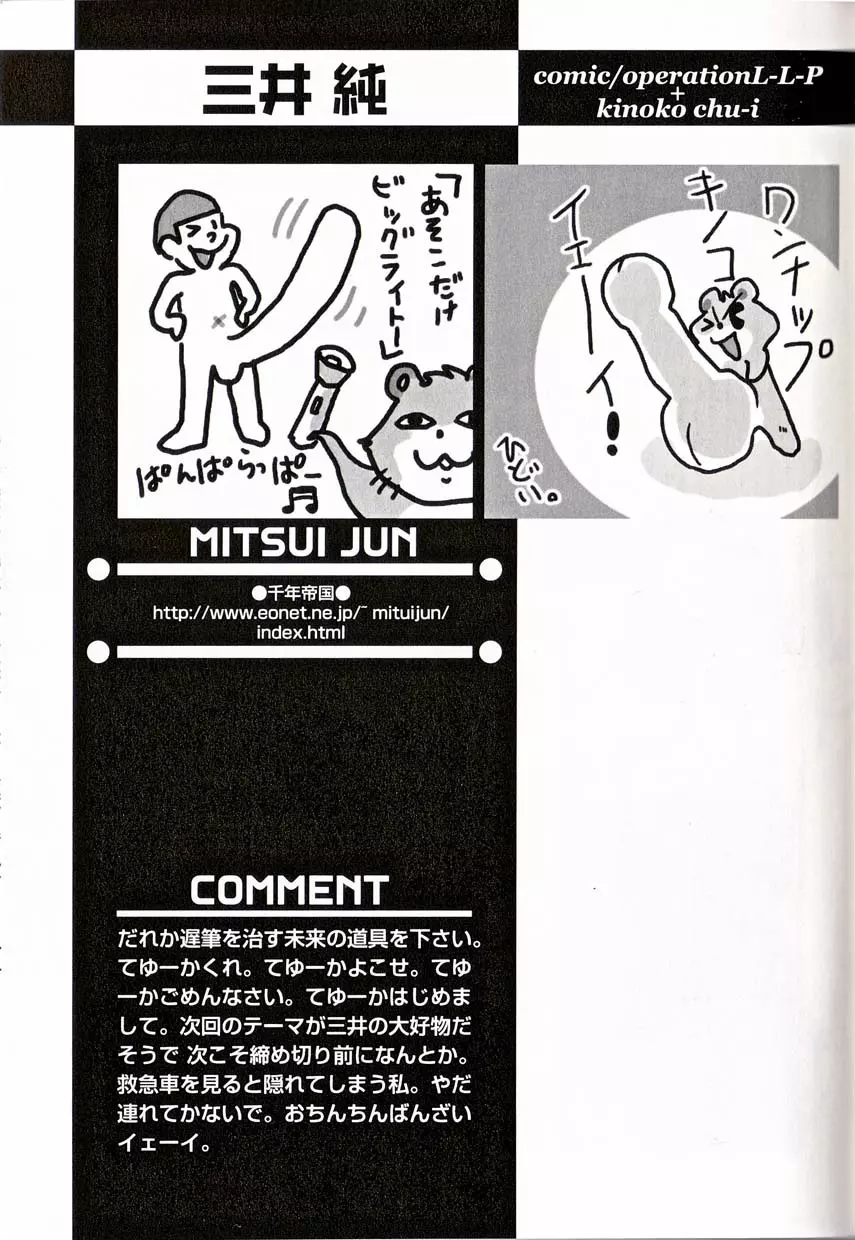 三井 純
comic/operationL-L-P
+
kinoko chu-i
「あそこだけ
ビッグライトー」
ぱんぱらっぱー♫
ワンナップ
キノコ
イェーイ!
ひどい。
MITSUI JUN
●千年帝国●
http://www.eonet.ne.jp/~mituijun/
index.html
COMMENT
だれか遅筆を治す未来の道具を下さい。
てゆーかくれ。てゆーかよこせ。てゆ
ーかごめんなさい。てゆーかはじめま
して。次回のテーマが三井の大好物だ
そうで 次こそ締め切り前になんとか。
救急車を見ると隠れてしまう私。やだ
連れてかないで。おちんちんばんざい
イェーイ。